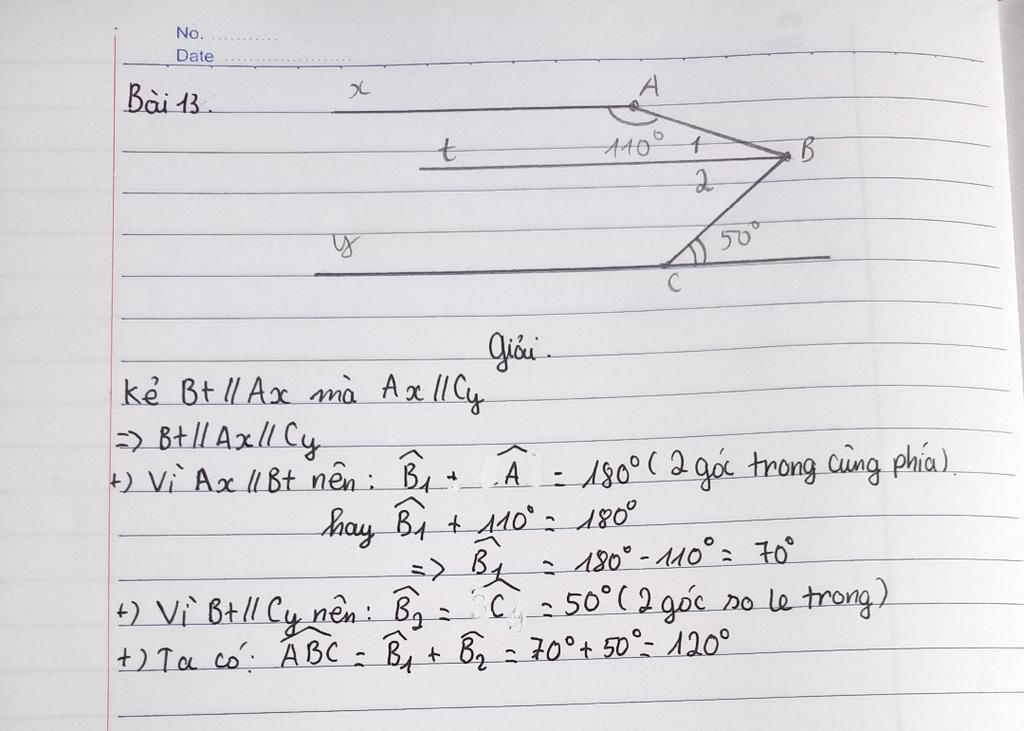 No. ...........
Date ......................
Bài 13.
x A
t 110° 1 B
2
y 50°
C
Giải.
Kẻ Bt // Ax mà Ax // Cy
=> Bt // Ax // Cy
+) Vì Ax // Bt nên: B̂₁ + Â = 180° (2 góc trong cùng phía).
hay B̂₁ + 110° = 180°
=> B̂₁ = 180° - 110° = 70°
+) Vì Bt // Cy nên: B̂₂ = Ĉ = 50° (2 góc so le trong)
+) Ta có: \widehat{ABC} = B̂₁ + B̂₂ = 70° + 50° = 120°